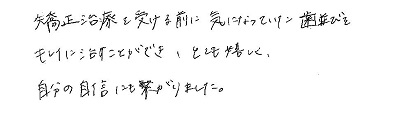 矯正治療を受ける前に気になっていた歯並びを
キレイに治すことができ、とても嬉しく、
自分の自信にも繋がりました。